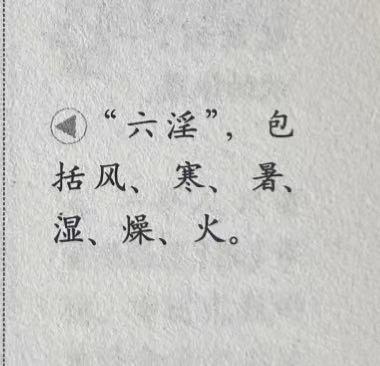 “六淫”，包
括风、寒、暑、
湿、燥、火。